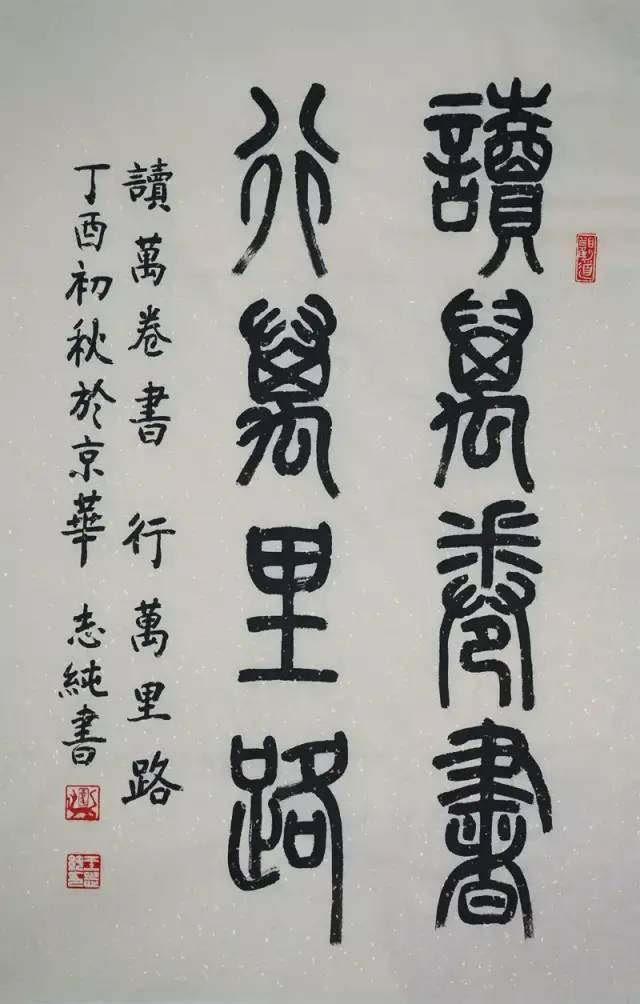 讀萬卷書
行萬里路
讀萬卷書 行萬里路
丁酉初秋於京華 志純書